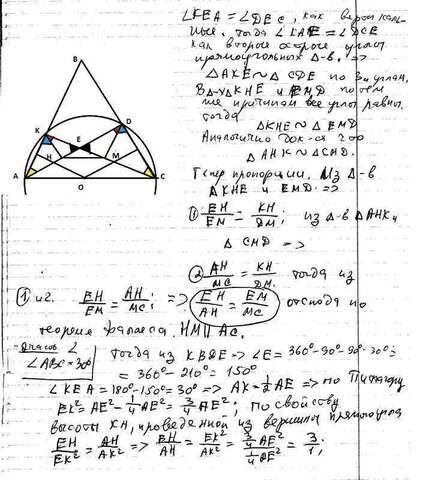 B
K
D
E
H
M
A
O
C
∠KEA = ∠DEC, как вертикаль-
ные. тогда ∠KAE = ∠DCE
как вторые острые углы
прямоугольных Δ-в. =>
ΔAKE ~ Δ CDE по 3м углам.
В Δ-х KHE и EMD по тем
же причинам все углы равны.
тогда
ΔKHE ~ Δ EMD
Аналогично док-ся что
Δ AHK ~ Δ CMD.
Теперь пропорции. Из Δ-в
ΔKHE и EMD. =>
① EH/EM = KH/DM; из Δ-в ΔAHK и
Δ CMD =>
② AH/MC = KH/DM. тогда из
① и 2. EH/EM = AH/MC; => EH/AH = EM/MC отсюда по
теореме Фалеса. HM || AC.
∠ABC = 30°
тогда из KBDE => ∠E = 360° - 90° - 90° - 30° =
= 360° - 210° = 150°
∠KEA = 180° - 150° = 30° => AK = ½ AE => по Пифагору
EK² = AE² - ¼ AE² = ¾ AE²; по свойству
высоты KH, проведенной из вершины прямого угла
EH/EK² = AH/AK² => EH/AH = EK²/AK² = ¾AE²/¼AE² = 3/1;